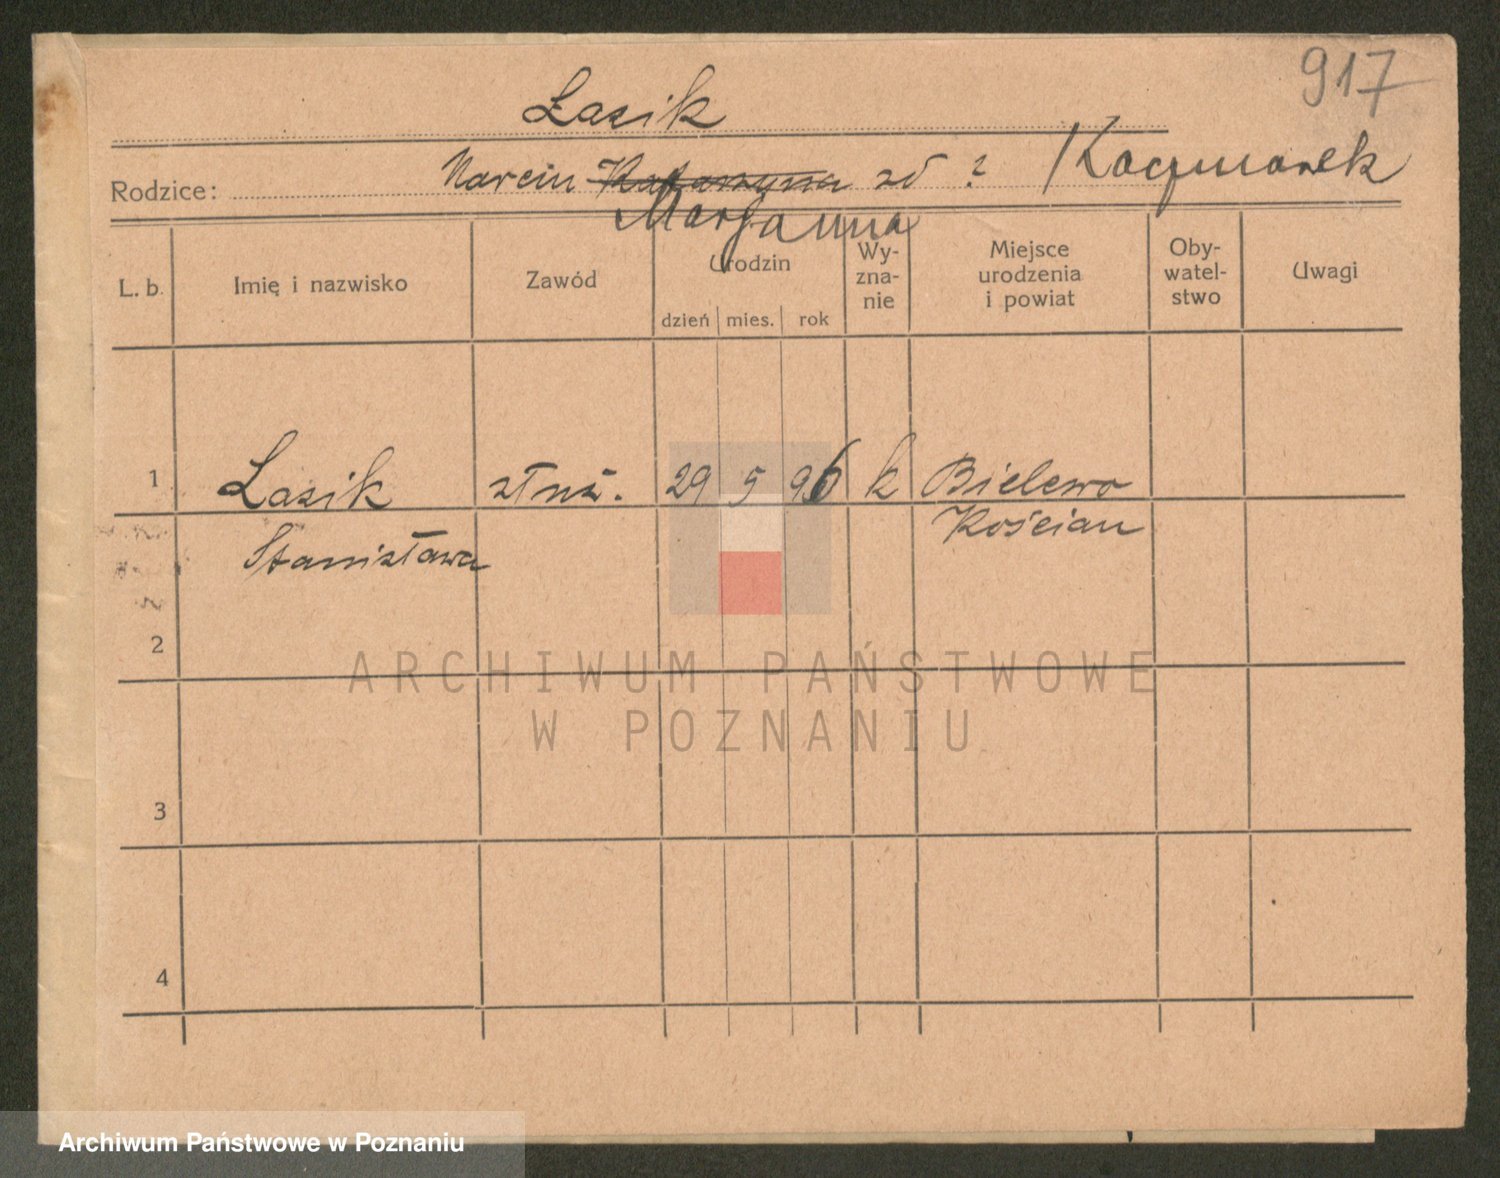 917
Łasik
Rodzice: Marcin Katarzyna zd ? Kaczmarek
Marjanna
L. b. Imię i nazwisko Zawód Urodzin Wy-zna-nie Miejsce urodzenia i powiat Oby-watel-stwo Uwagi
dzień mies. rok
1 Łasik służ. 29 5 96 k Bielewo
Stanisława Kościan
2
3
4
ARCHIWUM PAŃSTWOWE
W POZNANIU
Archiwum Państwowe w Poznaniu